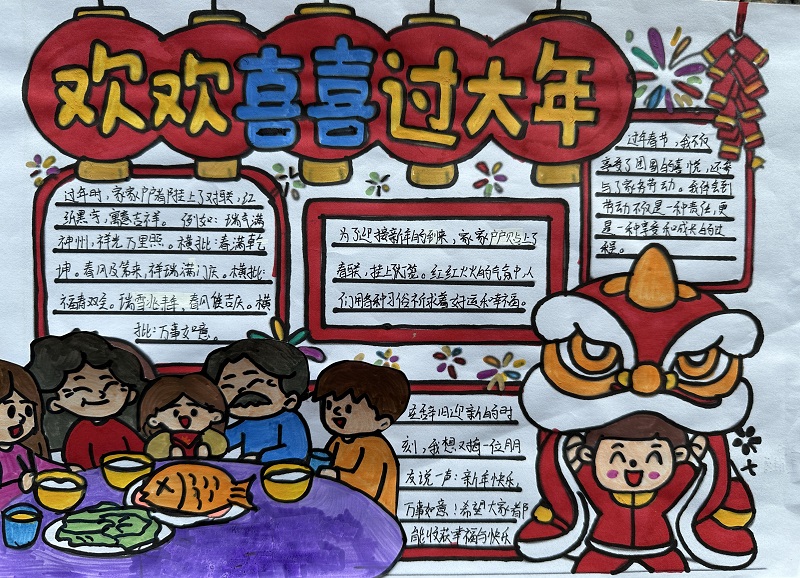 欢欢喜喜过大年
过年时，家家户户都挂上了对联，红
纸黑字，寓意吉祥。例如：瑞气满
神州，祥光万里照。横批：春满乾
坤。春风及第来，祥瑞满门庆。横批：
福寿双全。瑞雪兆丰年，春风集吉庆。横
批：万事如意。
为了迎接新年的到来，家家户户贴上了
春联，挂上灯笼。红红火火的气氛中人
们用各种习俗祈求着好运和幸福。
过年春节，我不仅
享受了团圆的喜悦，还参
与了家务劳动。我体会到
劳动不仅是一种责任，更
是一种享受和成长的过
程。
在辞旧迎新的时
刻，我想对每一位朋
友说一声：新年快乐，
万事如意！希望大家都
能收获幸福与快乐